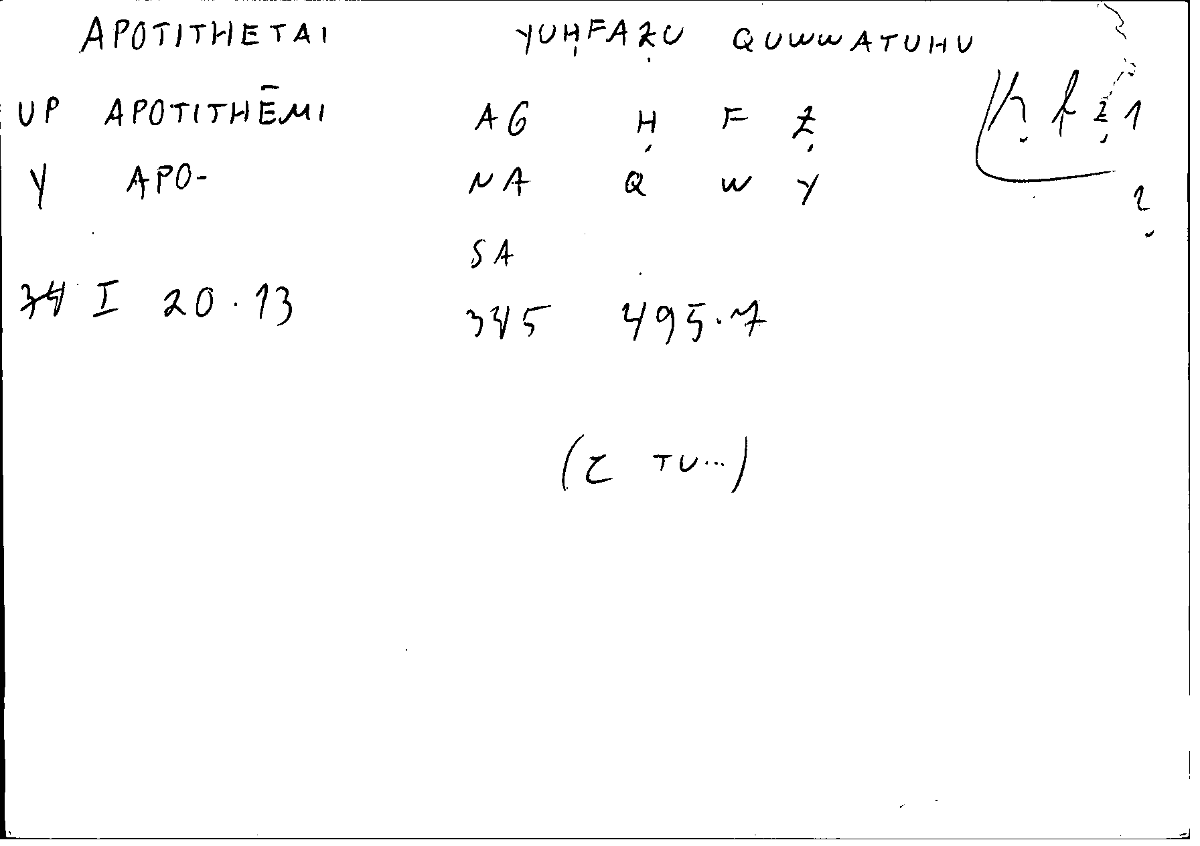 APOTITHETAI YUḤFAẒU QUWWATUHU
UP APOTITHĒMI AG Ḥ F Ẓ ḥ f ẓ 1
Y APO- NA Q W Y 2
SA
I 20.13 345 495.7
(Z TU...)